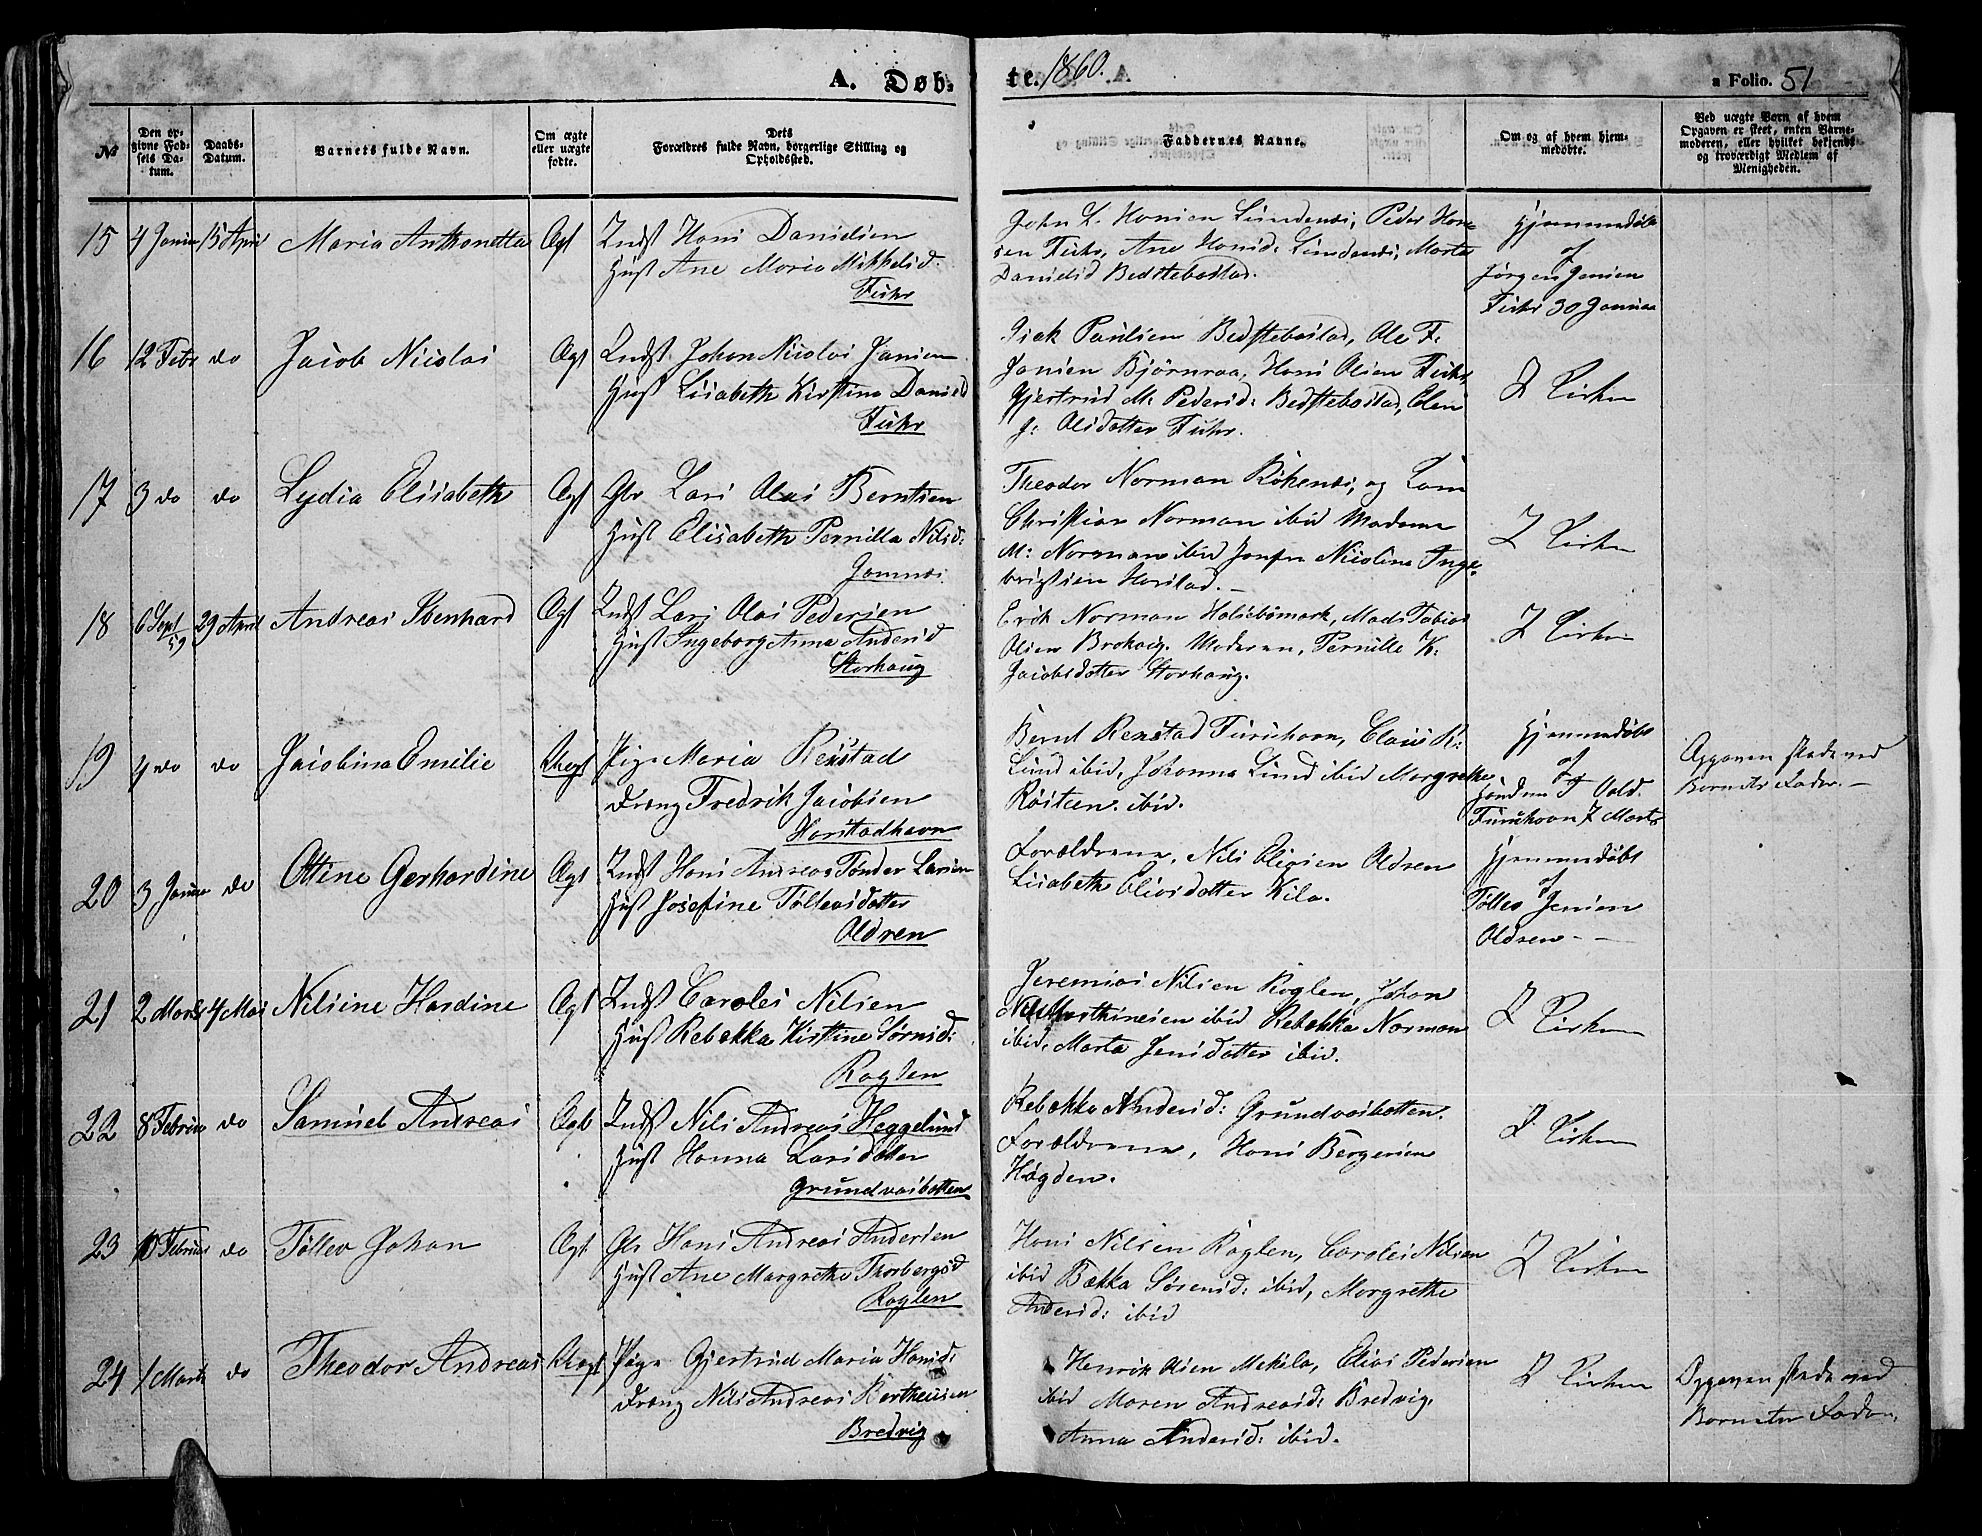 A. Døb-
te. 1860.
a Folio. 51
No
Den op-
givne Fød-
sels Da-
tum.
Daabs-
Datum.
Barnets fulde Navn.
Om ægte
eller uægte
fødte.
Dets
Forældres fulde Navn, borgerlige Stilling og
Opholdssted.
Faddernes Navne.
Om og af hvem hjem-
medøbte.
Ved uægte Barn af hvem
Opgaven er skeet, enten Barne-
moderen, eller hvilket bekjendt
og troværdigt Medlem af
Menigheden.
15 4 Januar 15 April Maria Anthonetta Ægt Indst Hans Danielsen
Hust Ane Maria Mikkelsd.
Fuhr
John L. Hansen Lundenes, Peder Han-
sen Fuhr, Ane Hansd: Lundenes, Marta
Danielsd Bedstebostad.
Hjemmedøbt
af
Jørgen Jensen
Fuhr 30 Januar
16 12 Febr do Jacob Nicolai Ægt Indst Johan Nicolai Jansen
Hust Lisabeth Kirstina Danielsd
Fuhr
Isak Paulsen Bedstebostad, Ole F.
Jansen Bjørnraa, Hans Olsen Fuhr,
Gjertrud M. Pedersd: Bedstebostad, Elen
J: Olsdatter Fuhr.
I Kirken
17 3 do do Lydia Elisabeth Ægt Lars Olai Berntsen
Hust Elisabeth Pernilla Nilsd:
Theodor Norman Røkenes, og
Christian Norman ibid Madame
M: Norman ibid Nicolina Inge-
brigtsen Harstad.
I Kirken
18 6 Sept 59 29 April Andreas Ebenhard Ægt Indst Lars Olai Pedersen
Hust Ingeborg Anna Andersd
Storhaug
Erik Norman Halsebømark, Mads Tobias
Olsen Brokvig. Moderen, Pernille K.
Jacobsdatter Storhaug.
I Kirken
19 4 do do Jacobina Emilie Uægt Pige Maria Renstad
Dreng Fredrik Jacobsen
Harstadhavn
Bernt Renstad Claus K:
Lund ibid, Johanna Lund ibid Margrethe
ibid.
Hjemmedøbt
af
7 Marts
Opgaven skede ved
Barnets Fader.
20 3 Januar do Ottine Gerhardine Ægt Indst Hans Andreas Tønder Larsen
Hust Josefine Tøllevsdatter
Aldren
Forældrene, Nils Eliasen Aldsen
Lisabeth Eliasdatter Kila.
Hjemmedøbt
af
Tøllev Jensen
Aldsen
21 2 Marts 4 Mai Nilsine Hardine Ægt Indst Carolei Nilsen
Hust Rebekka Kirstine Sørnsd:
Roglen
Jeremias Nilsen Roglen, Johan
Marthinesen ibid Rebekka Norman
ibid. Marta Jensdatter ibid.
I Kirken
22 8 Februar do Samuel Andreas Ægt Indst Nils Andreas Heggelund
Hust Hanna Larsdatter
Grundvasbotten
Rebekka Andersd: Grundvasbotten.
Forældrene, Hans Bergersen
Høgden.
I Kirken
23 10 Februar do Tøllev Johan Ægt Hans Andreas Andersen
Hust Ane Margrethe Thorbergsd
Roglen
Hans Nilsen Roglen, Carolei Nilsen
ibid Bekka Sørensd: ibid, Margrethe
Andersd: ibid
I Kirken
24 1 Marts do Theodor Andreas Uægt Pige Gjertrud Maria Hansd:
Dreng Nils Andreas Bertheusen
Bredvig
Henrik Olsen Mekila, Elias Pedersen
ibid Maren Andreasd: Bredvig,
Anna Andersd: ibid.
I Kirken
Opgaven skede ved
Barnets Fader.